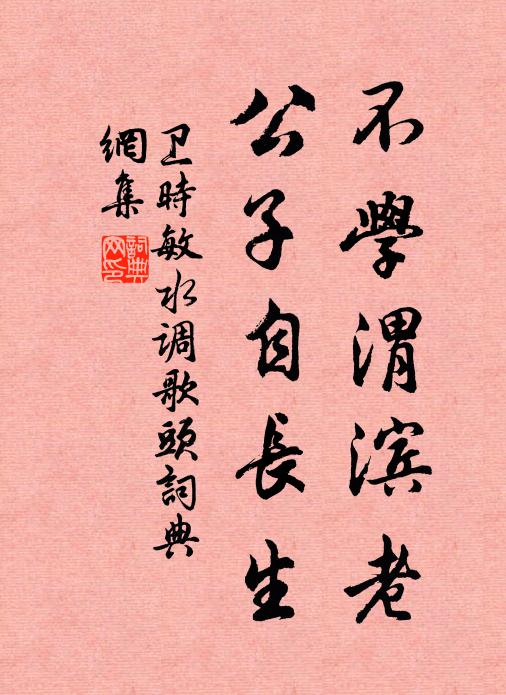 不學渭滨老
公子自長生
卫時敏水调歌頭詞典
網集
詞典
网印